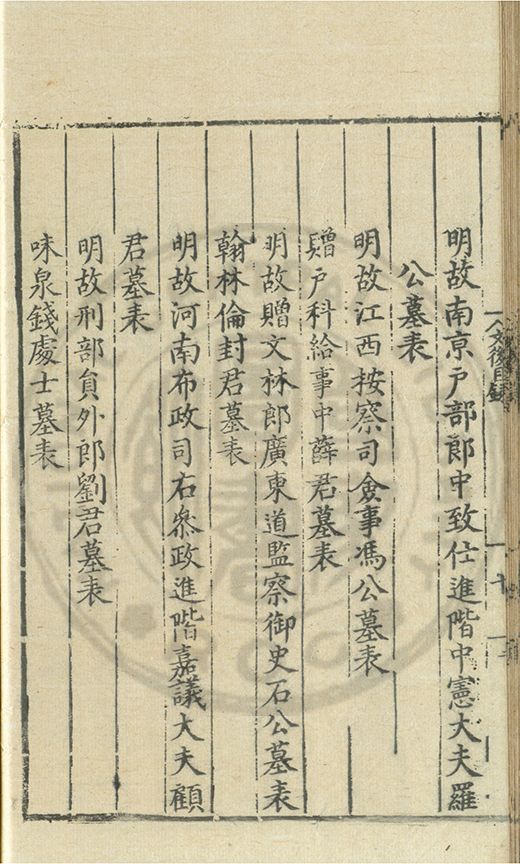 明故南京戸部郎中致仕進階中憲大夫羅
公墓表
明故江西按察司僉事馮公墓表
贈戸科給事中薛君墓表
明故贈文林郎廣東道監察御史石公墓表
翰林倫封君墓表
明故河南布政司右叅政進階嘉議大夫顧
君墓表
明故刑部員外郎劉君墓表
味泉錢處士墓表